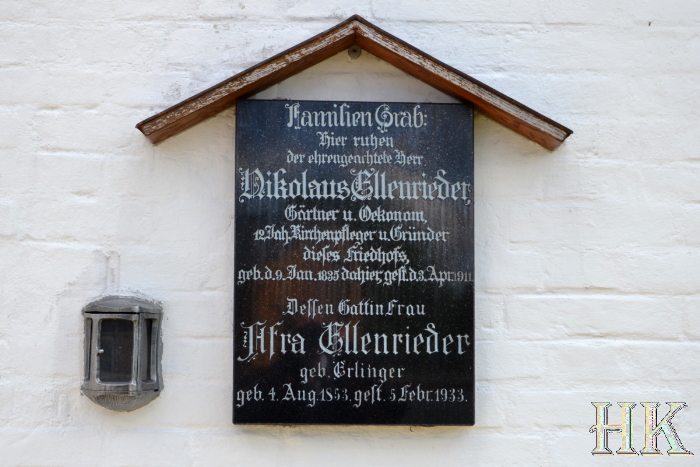 Familien Grab:
Hier ruhen
der ehrengeachtete Herr
Nikolaus Ellenrieder,
Gärtner u. Oekonom,
12 Jah. Kirchenpfleger u. Gründer
dieses Friedhofs,
geb. d. 9. Jan. 1835 dahier, gest. d. 3. Apr. 1911.
Dessen Gattin Frau
Afra Ellenrieder
geb. Erlinger
geb. 4. Aug. 1853, gest. 5. Febr. 1933.
HK